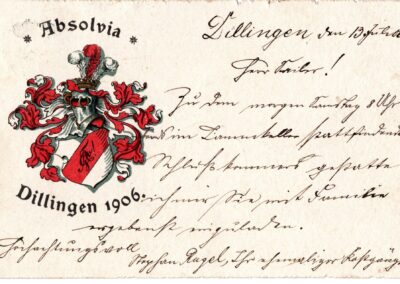 Absolvia
Dillingen 1906.
Dillingen, den 13. Juli 06
Herr Sailer!
Zu dem morgen Samstag 8 Uhr
abends im Lammkeller stattfindenden
Schlußkommers gestatte
ich mir Sie mit Familie
ergebenst einzuladen.
Hochachtungsvoll
Stephan Ragel, Ihr ehemaliger Kostgänger